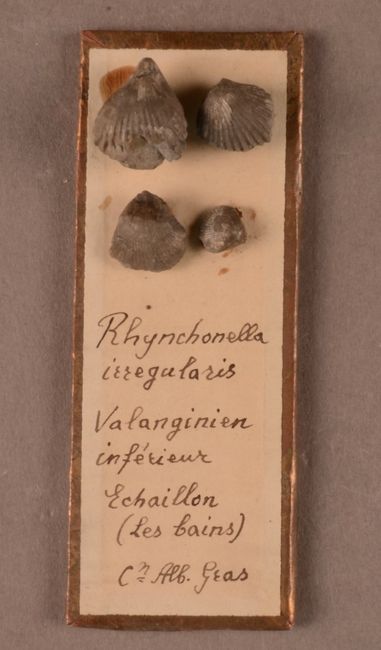 Rhynchonella
irregularis
Valanginien
inférieur
Echaillon
(Les bains)
Cⁿ Alb. Gras